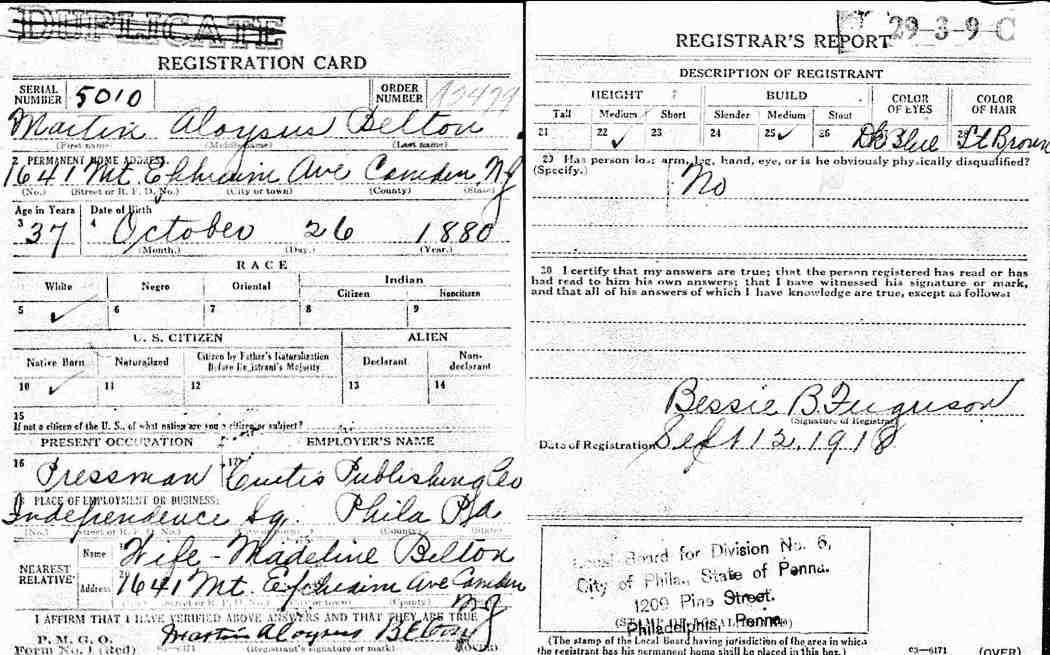 DUPLICATE
REGISTRATION CARD
SERIAL NUMBER 5010 ORDER NUMBER
Martin Aloysus Belton
(First name) (Middle name) (Last name)
2 PERMANENT HOME ADDRESS:
1641 Mt. Ephraim Ave Camden NJ
(No.) (Street or R. F. D. No.) (City or town) (County) (State)
Age in Years Date of Birth
3 37 4 October 26 1880
(Month.) (Day.) (Year.)
RACE
White Negro Oriental Indian
Citizen Noncitizen
5 ✓ 6 7 8 9
U. S. CITIZEN ALIEN
Native Born Naturalized Citizen by Father's Naturalization Before Registrant's Majority Declarant Non-declarant
10 ✓ 11 12 13 14
15
If not a citizen of the U. S., of what nation are you a citizen or subject?
PRESENT OCCUPATION EMPLOYER'S NAME
16 Pressman 17 Curtis Publishing Co
18 PLACE OF EMPLOYMENT OR BUSINESS:
Independence Sq. Phila Pa
(No.) (Street or R. F. D. No.) (City or town) (County) (State)
NEAREST RELATIVE Name 19 Wife - Madeline Belton
Address 20 1641 Mt. Ephraim Ave Camden NJ
(No.) (Street or R. F. D. No.) (City or town) (County) (State)
I AFFIRM THAT I HAVE VERIFIED ABOVE ANSWERS AND THAT THEY ARE TRUE
P. M. G. O.
Form No. 1 (Red) 03—6171 Martin Aloysus Belton
(Registrant's signature or mark) (OVER)
29-3-9 C
REGISTRAR'S REPORT
DESCRIPTION OF REGISTRANT
HEIGHT BUILD COLOR OF EYES COLOR OF HAIR
Tall Medium Short Slender Medium Stout
21 22 ✓ 23 24 25 ✓ 26 27 Dk Blue 28 Lt Brown
29 Has person lost arm, leg, hand, eye, or is he obviously physically disqualified?
(Specify.) No
30 I certify that my answers are true; that the person registered has read or has
had read to him his own answers; that I have witnessed his signature or mark,
and that all of his answers of which I have knowledge are true, except as follows:
Bessie B. Ferguson
(Signature of Registrar)
Date of Registration Sept 12, 1918
Local Board for Division No. 6,
City of Phila., State of Penna.
1209 Pine Street.
(STAMP OF LOCAL BOARD)
Philadelphia, Penna.
(The stamp of the Local Board having jurisdiction of the area in which
the registrant has his permanent home shall be placed in this box.) 03—6171 (OVER)